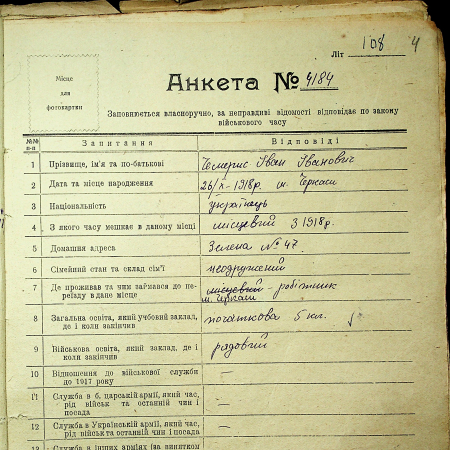 Літ 108 4
Місце
для
фотокартки
Анкета № 4184
Заповнюється власноручно, за неправдиві відомості відповідає по закону
військового часу
№№ п-п Запитання Відповіді
1 Прізвище, ім'я та по-батькові Чемерис Іван Іванович
2 Дата та місце народження 26/X-1918р. м. Черкаси
3 Національність українець
4 З якого часу мешкає в даному місці місцевий з 1918р.
5 Домашня адреса Зелена № 47
6 Сімейний стан та склад сім'ї неодружений
7 Де проживав та чим займався до пе-
реїзду в дане місце місцевий - робітник
м. Черкаси
8 Загальна освіта, який учбовий заклад,
де і коли закінчив початкова 5 кл.
9 Військова освіта, який заклад, де і
коли закінчив рядовий
10 Відношення до військової служби
до 1917 року —
11 Служба в б. царській армії, який час,
рід військ та останній чин і
посада —
12 Служба в Українській армії, який час,
рід військ та останній чин і посада —
13 Служба в інших арміях (за винятком